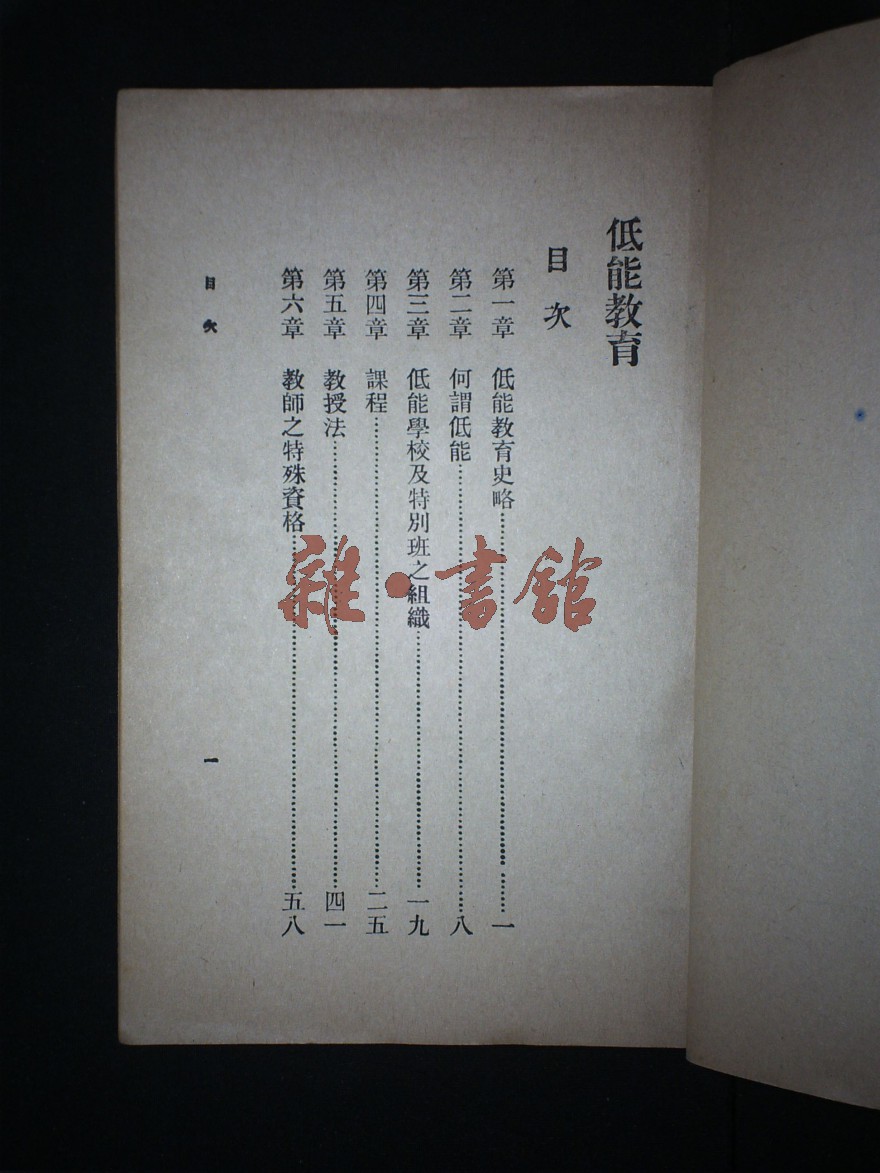 低能教育
目次
第一章 低能教育史略……一
第二章 何謂低能……八
第三章 低能學校及特別班之組織……一九
第四章 課程……二五
第五章 教授法……四一
第六章 教師之特殊資格……五八
目次 一
雜·書館